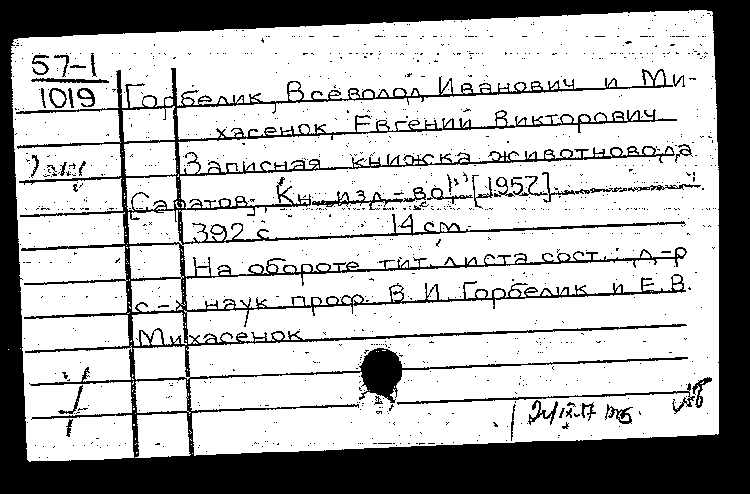 57-1
1019
Горбелик, Всеволод Иванович и Ми-
хасенок, Евгений Викторович
Записная книжка животновода
[Саратов], Кн. изд-во, [1957].
392 с. 14 см.
На обороте тит. листа сост.: д-р
с.-х наук проф. В. И. Горбелик и Е. В.
Михасенок